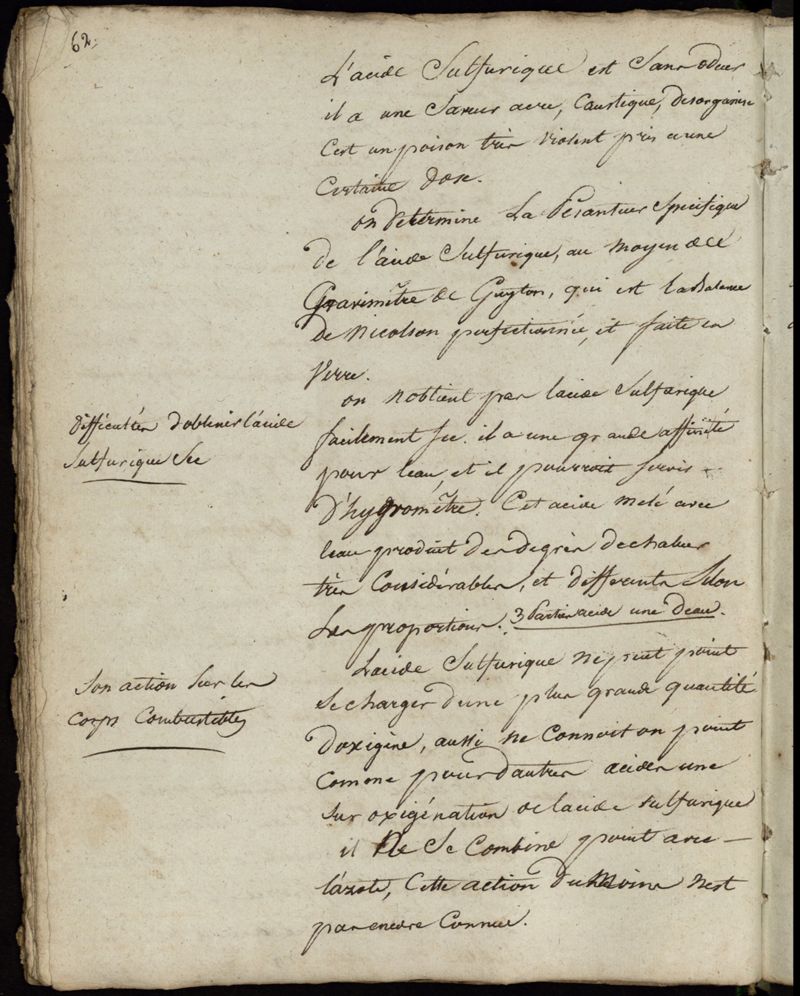 62.
L'acide Sulfurique est Sans odeur
il a une Saveur acre, Caustique, desorganise
C'est un poison très violent pris a une
Certaine dose.
on determine La Pésanteur Specifique
de l'acide Sulfurique, au moyen de
Gravimêtre de Guyton, qui est la Balance
de Nicolson perfectionnée, et faite en
Verre.
Difficultés d'obtenir l'acide
Sulfurique Sec
on n'obtient pas lacide Sulfurique
facilement Sec. il a une grande affinité
pour leau, et il pourroit servir
D'hygromêtre. Cet acide melé avec
leau produit des degrés de chaleur
très Considérables, et differents Selon
Les proportions. 3 Parties acide une Deau.
Son action Sur les
Corps Combustibles
Lacide Sulfurique ne peut point
Se charger dune plus grande quantité
Doxigène, aussi ne Connoit on point
Comme pour dautres acides une
Sur oxigénation de lacide sulfurique
il Ne Se Combine point avec
lázote, Cette action Du Moins n'est
pas encore Connue.